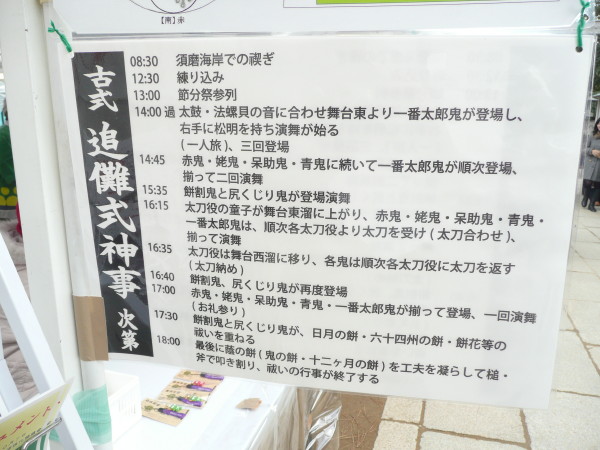 【南】赤
古式 追儺式神事 次第
08:30 須磨海岸での禊ぎ
12:30 練り込み
13:00 節分祭参列
14:00 過 太鼓・法螺貝の音に合わせ舞台東より一番太郎鬼が登場し、
右手に松明を持ち演舞が始る
(一人旅)、三回登場
14:45 赤鬼・姥鬼・呆助鬼・青鬼に続いて一番太郎鬼が順次登場、
揃って二回演舞
15:35 餅割鬼と尻くじり鬼が登場演舞
16:15 太刀役の童子が舞台東溜に上がり、赤鬼・姥鬼・呆助鬼・青鬼・
一番太郎鬼は、順次各太刀役より太刀を受け(太刀合わせ)、
揃って演舞
16:35 太刀役は舞台西溜に移り、各鬼は順次各太刀役に太刀を返す
(太刀納め)
16:40 餅割鬼、尻くじり鬼が再度登場
17:00 赤鬼・姥鬼・呆助鬼・青鬼・一番太郎鬼が揃って登場、一回演舞
(お礼参り)
17:30 餅割鬼と尻くじり鬼が、日月の餅・六十四州の餅・餅花等の
祓いを重ねる
18:00 最後に蔭の餅(鬼の餅・十二ヶ月の餅)を工夫を凝らして槌・
斧で叩き割り、祓いの行事が終了する